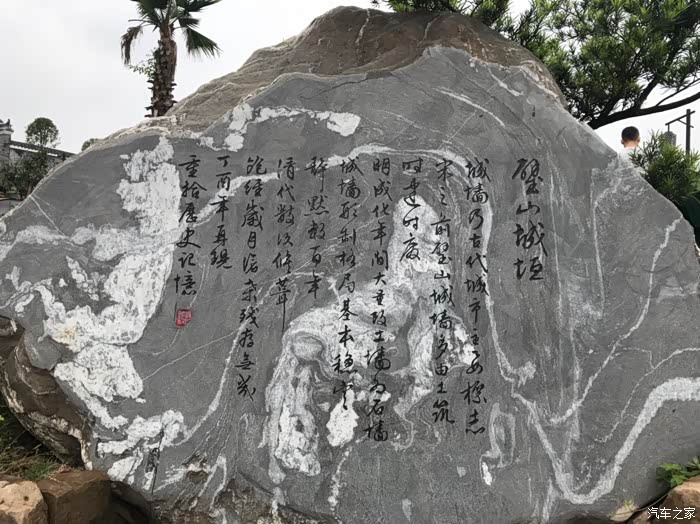 璧山城垣
城墙乃古代城市主要标志
宋之前璧山城墙多由土筑
时建时废
明成化年间大重改土墙为石墙
城墙形制格局基本稳定
静默数百年
清代数次修葺
饱经岁月沧桑残存无几
丁酉年再现
重拾历史记忆
汽车之家